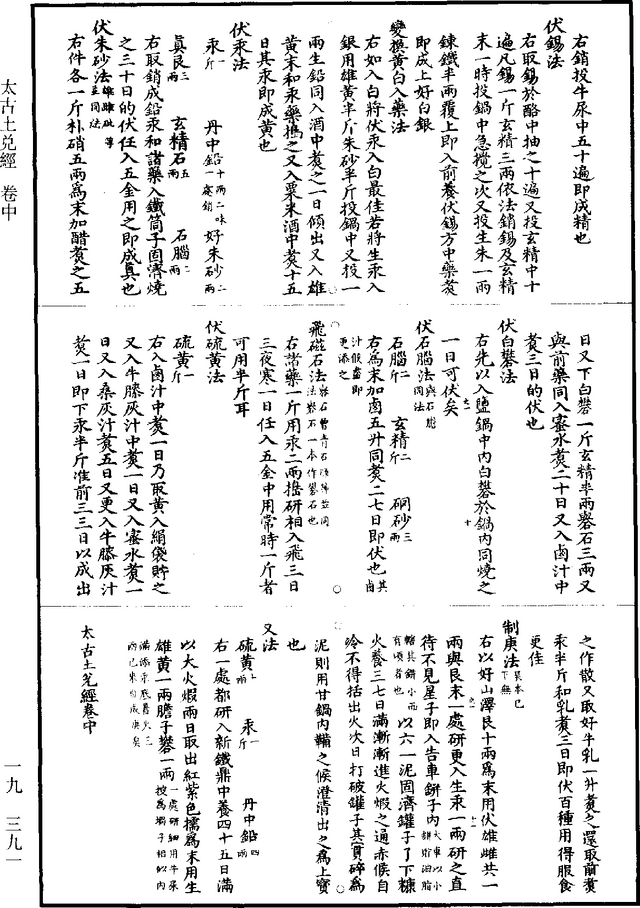 右銷投牛尿中五十遍即成精也
伏錫法
右取錫於酪中抽之十遍又投玄精中十
遍凡錫一斤玄精三兩依法銷錫及玄精
末一時投鍋中急攪之次又投生朱一兩
鍊鐵半兩覆上即入前養伏錫方中藥煑
即成上好白銀
變換黄白入藥法
右如入白將伏汞入白最佳若將生汞入
銀用雄黄半斤朱砂半斤投鍋中又投一
兩生鉛同入酒中煑之一日傾出又入雄
黄末和汞藥搗之又入粟米酒中煑十五
日其汞即成黄也
伏汞法
汞一斤 丹中鉛十兩二味一處銷 好朱砂二兩
真艮三兩 玄精石五兩 石腦二兩
右取銷成鉛汞和諸藥入鐵筒子固濟燒
之三十日的伏任入五金用之即成真也
伏朱砂法雄雌砒等並同法
右件各一斤朴硝五兩爲末加醋煑之五
日又下白礬一斤玄精半兩礜石三兩又
與前藥同入蜜水煑二十日又入鹵汁中
煑三日的伏也
伏白礬法
右先以入鹽鍋中内白礬於鍋内同燒之
一日可伏矣
伏石腦法與石膽同法
石腦二斤 玄精二斤 硇砂三兩
右爲末加鹵五升同煑二七日即伏也其鹵
汁候盡即
更添之
飛磁石法
法礜石一本作礬石也
右諸藥一斤用汞二兩搗研相入飛三日
三夜寒一日任入五金中用常時一斤者
可用半斤耳
伏硫黄法
硫黄一斤
右入鹵汁中煑一日乃取黄入絹袋貯之
又入牛膝灰汁中煑一日又入蜜水煑一
日又入桑灰汁煑五日又更入牛膝灰汁
煑一日即下汞半斤准前三三日以成出
之作散又取好牛乳一升煑之還取前煑
汞半斤和乳煑三日即伏百種用得服食
更佳
制庚法艮本已下無
右以好山澤艮十兩爲末用伏雄雌共一
兩與艮末一處研更入生汞一兩研之直
待不見星子即入告車餅子内大車以小餅貯油脂
糖其餅小而有頃者也以六一泥固濟罐子了下糠
火養三七日滿漸漸進火煆之通赤候自
冷不得括出火次日打破罐子其一貫碎爲
泥則用甘鍋内鞴之候澄清出之爲上寶
也
又法
硫黄一兩 汞一斤 丹中鉛四兩
右一處都研入新鐵鼎中養四十五日滿
以大火煆兩日取出紅紫色擣爲末用生
雄黄一兩膽子礬一兩一處研細用牛尿
滿添汞底養火三
兩已來自成庚矣
太古土兌經卷中
太古土兌經 卷中
一九 三九一